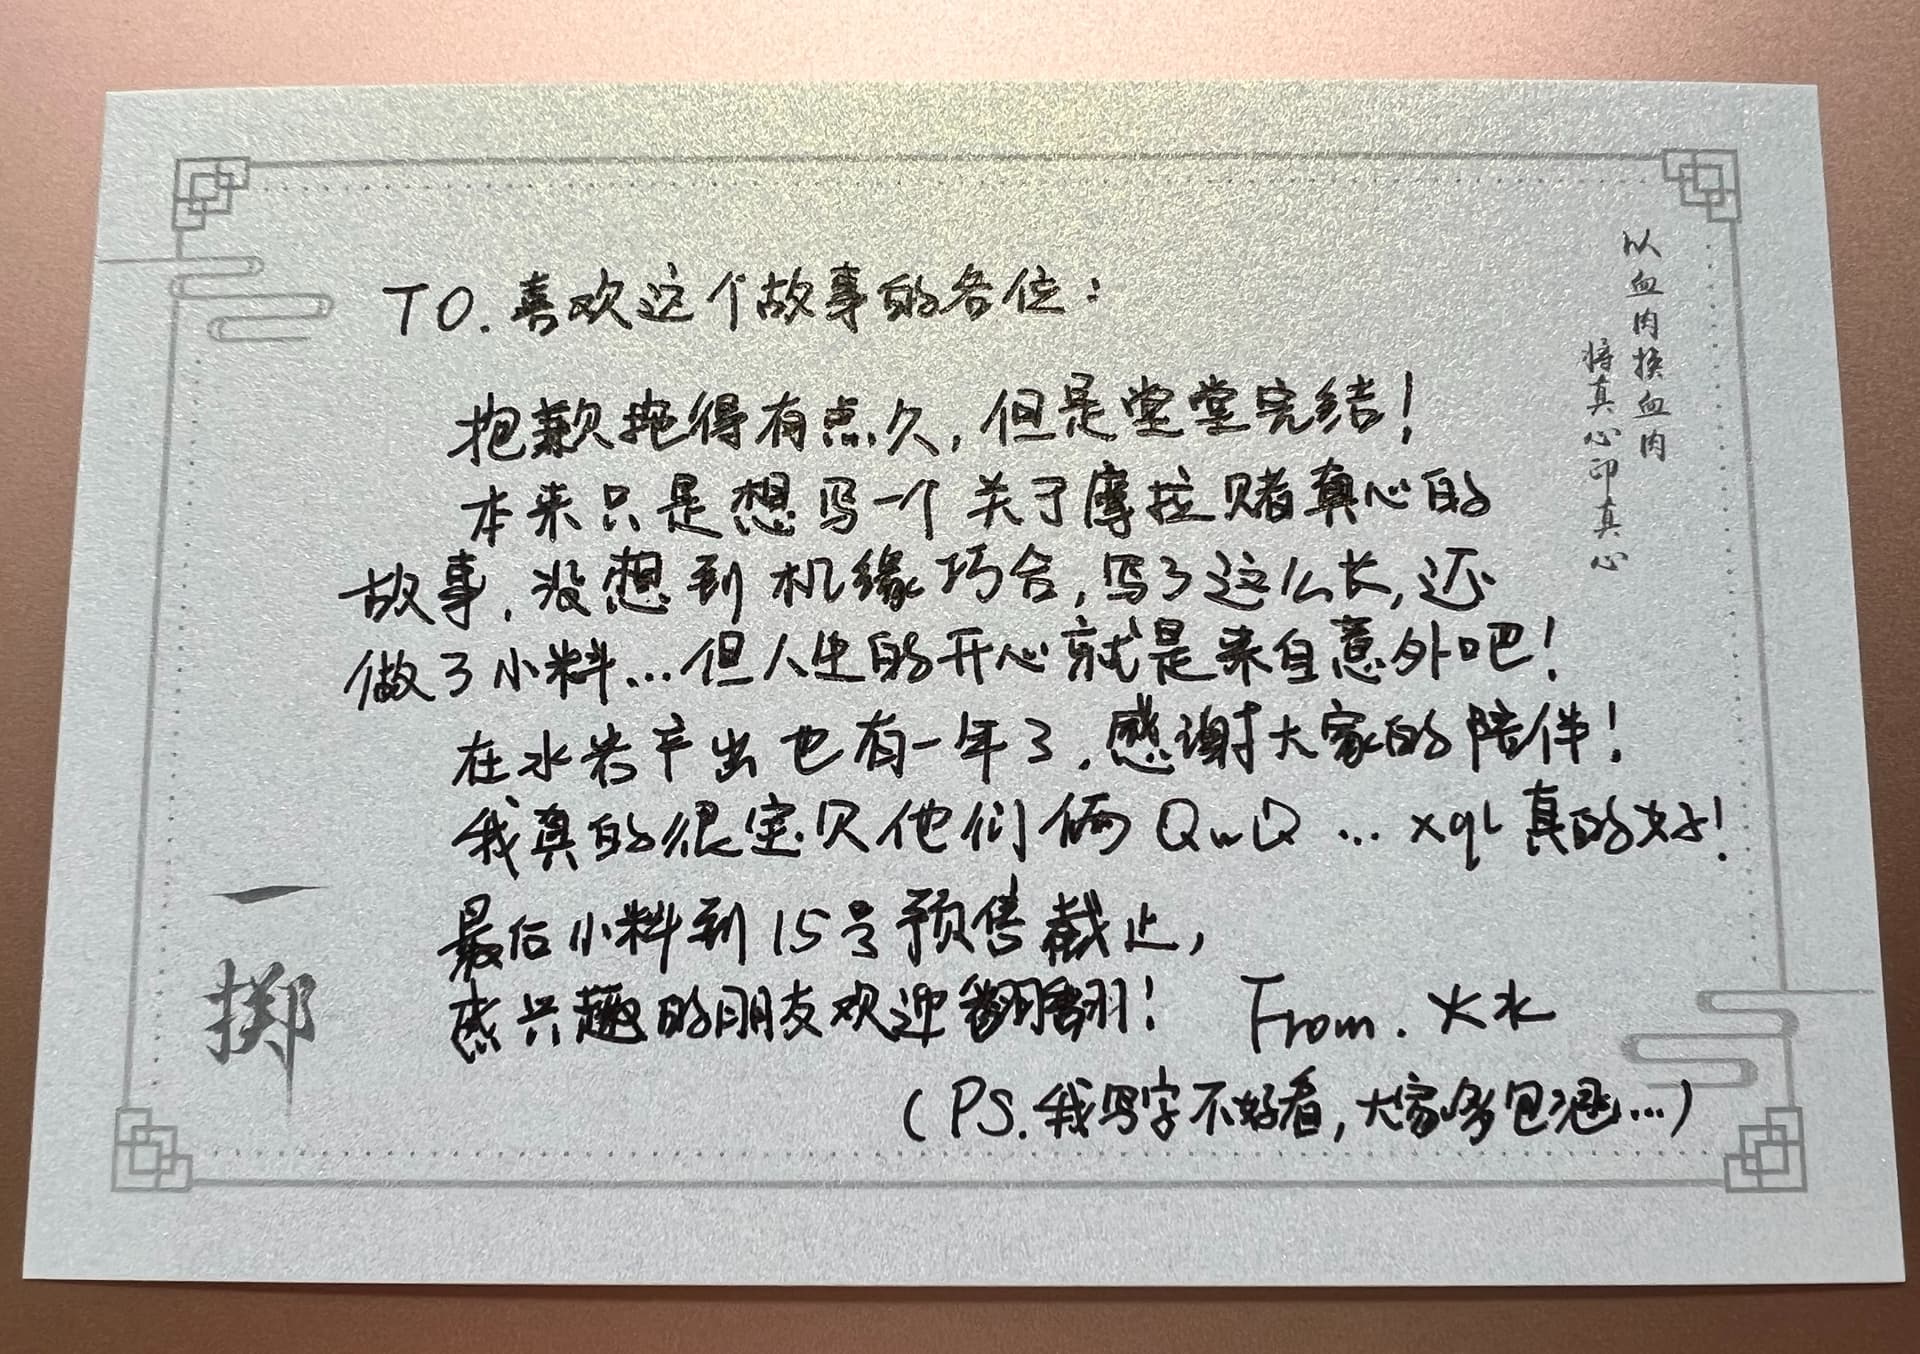 TO.喜欢这个故事的各位：
抱歉拖得有点久,但是堂堂完结!
本来只是想写一个关于摩拉赌真心的
故事,没想到机缘巧合,写了这么长,还
做了小料...但人生的开心就是来自意外吧!
在水岩产出也有一年了,感谢大家的陪伴!
我真的很宝贝他们俩QwQ...xql真的好!
最后小料到15号预售截止,
感兴趣的朋友欢迎翻翻!
From.火水
(PS.我写字不好看,大家多包涵...)
以血肉换血肉
将真心印真心
一掷